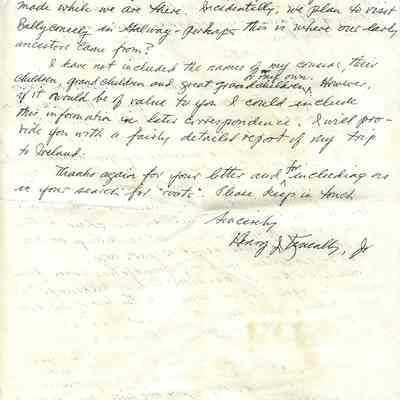 made while we are there. Incidentally, we plan to visit
in Galway - perhaps this is where our early
ancestors came from?
I have not included the names of my cousins, their
or my own.
children, grandchildren and great grandchildren, However,
if it would be of value to you I could include
this information in later correspondence. I will pro-
vide you with a fairly detailed report of my trip
to Ireland.
Thanks again for your letter and for including us
in your search for "roots". Please keep in touch
Sincerely
Henry J. Jr